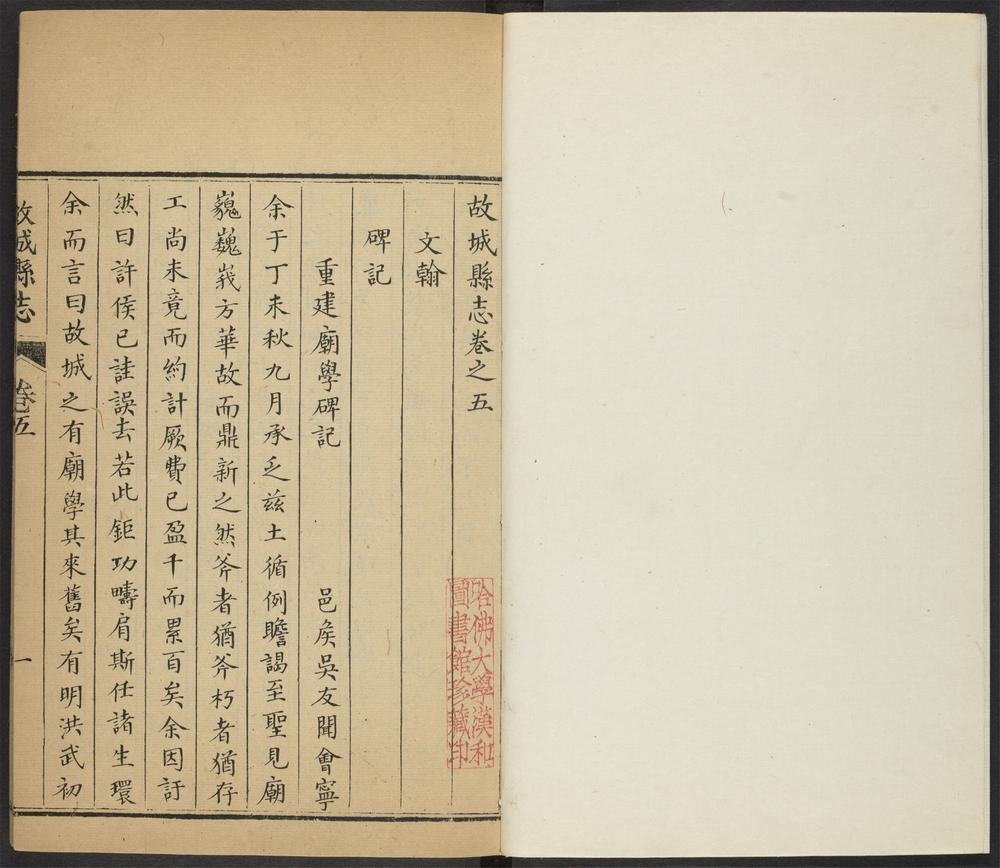 故城縣志卷之五
文翰
碑記
重建廟學碑記　邑矦吳友聞會寧
余于丁未秋九月承乏兹土循例瞻謁至聖見廟
貌巍峩方華故而鼎新之然斧者猶斧朽者猶存
工尚未竟而約計厥費已盈千而累百矣余因訝
然曰許侯已詿誤去若此鉅功疇肩斯任諸生環
余而言曰故城之有廟學其來舊矣有明洪武初
故城縣志　卷五　一
哈佛大學漢和
圖書館珍藏印